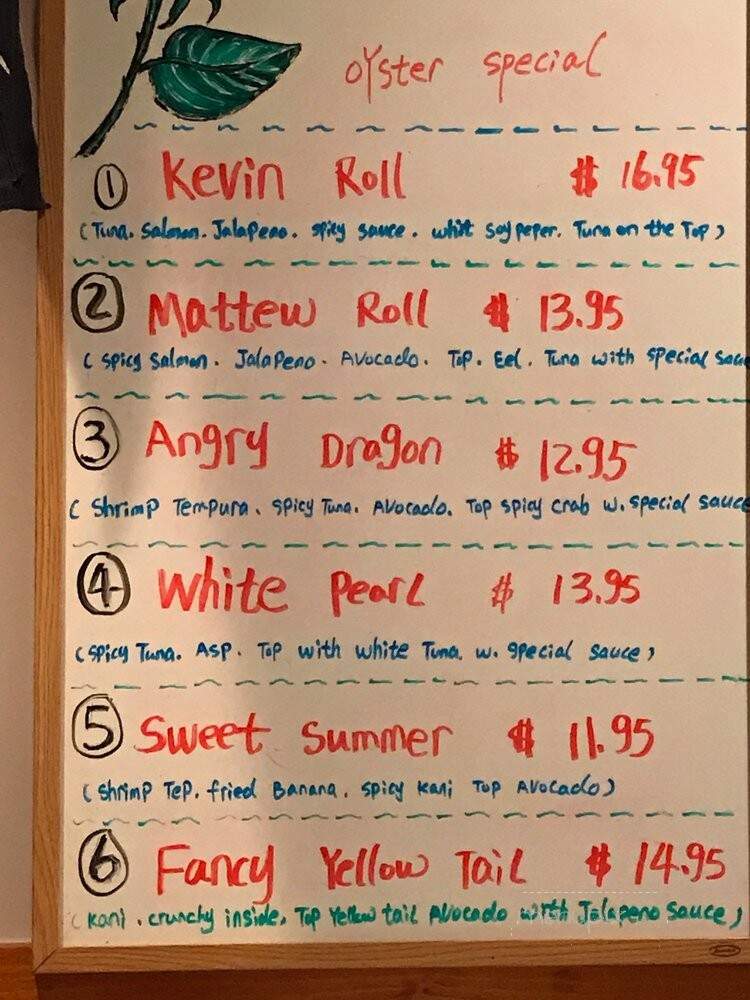 oyster special
1 Kevin Roll $ 16.95
(Tuna. Salmon. Jalapeno. spicy sauce. whit soy peper. Tuna on the Top)
2 Mattew Roll $ 13.95
(spicy salmon. Jalapeno. Avocado. Top. Eel. Tuna with special sauc
3 Angry Dragon $ 12.95
(Shrimp Tempura. spicy Tuna. Avocado. Top spicy crab w. special sauce
4 White Pearl $ 13.95
(spicy Tuna. Asp. Top with white Tuna. w. special sauce)
5 Sweet Summer $ 11.95
(shrimp Tep. fried Banana. spicy kani Top Avocado)
6 Fancy Yellow Tail $ 14.95
(kani. crunchy inside. Top Yellow tail Avocado with Jalapeno sauce)